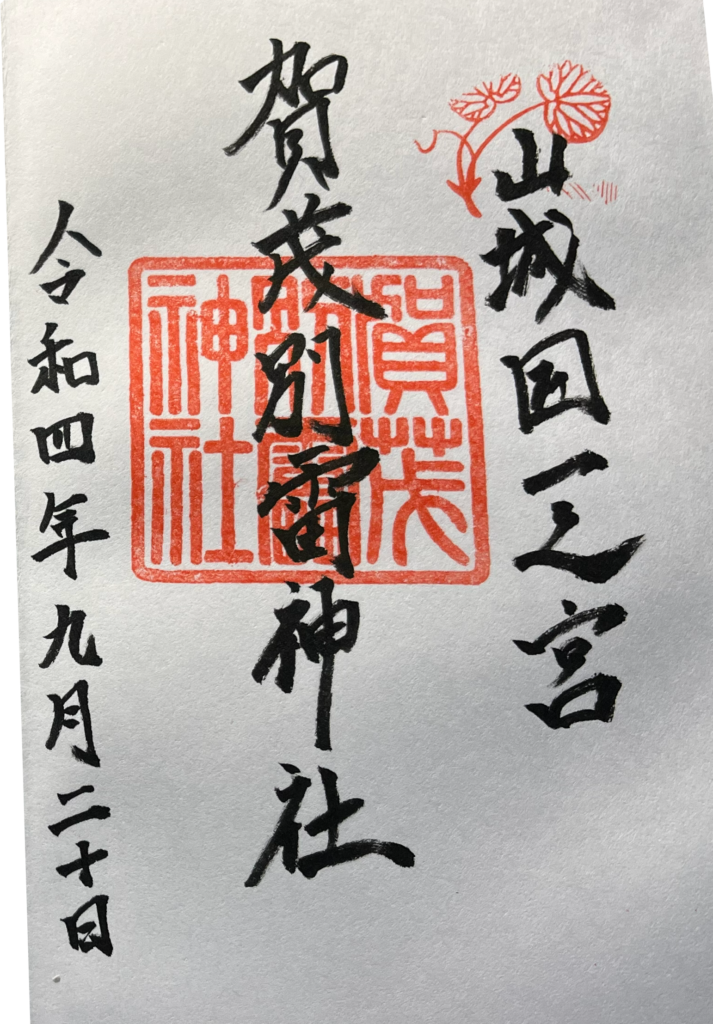 山城国一之宮
賀茂別雷神社
賀茂
別雷
神社
令和四年九月二十日